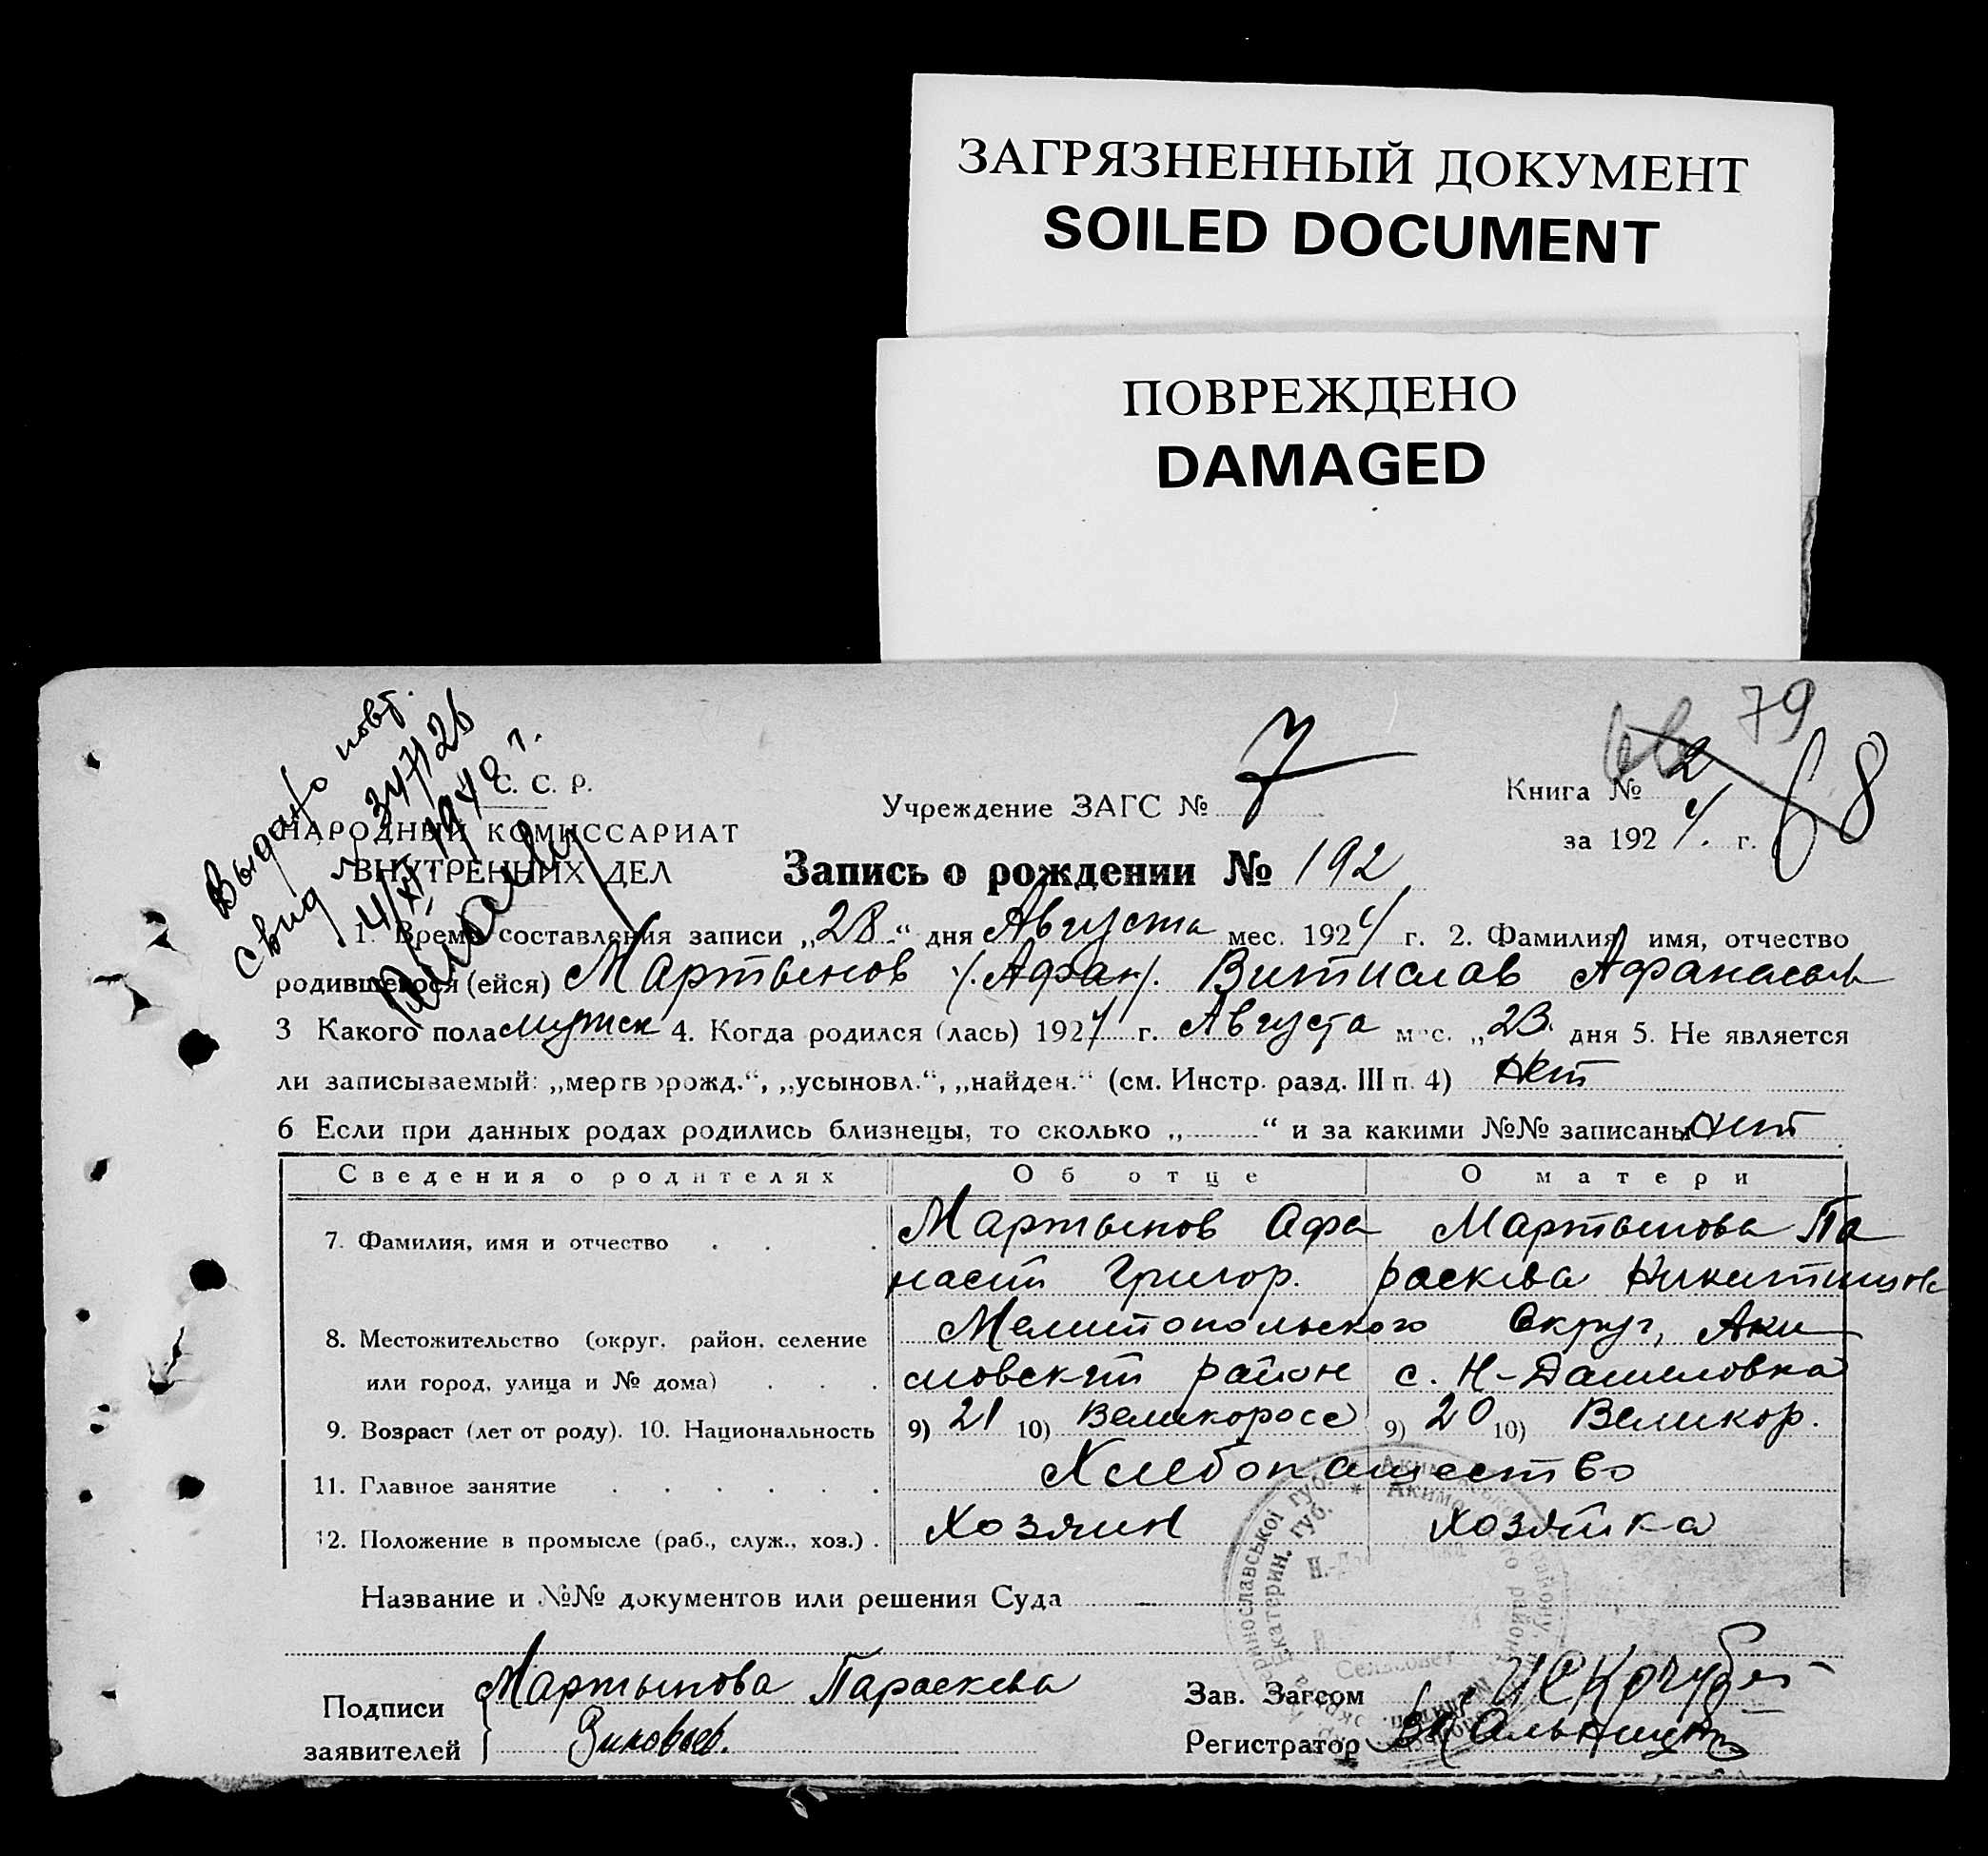 ЗАГРЯЗНЕННЫЙ ДОКУМЕНТ
SOILED DOCUMENT
ПОВРЕЖДЕНО
DAMAGED
79
68
Выдано повт.
свид 347126
4/XI 1940 г.
С. С. Р.
НАРОДНЫЙ КОМИССАРИАТ
ВНУТРЕННИХ ДЕЛ
Учреждение ЗАГС № 7
Книга № 2
за 1924 г.
Запись о рождении № 192
1. Время составления записи „28“ дня Августа мес. 1924 г. 2. Фамилия, имя, отчество
родившегося (ейся) Мартынов /.Афан/. Витислав Афанасьев
3 Какого пола мужск 4. Когда родился (лась) 1924 г. Августа мес. „23“ дня 5. Не является
ли записываемый: „мертворожд.“, „усыновл.“, „найден.“ (см. Инстр. разд. III п. 4) Нет
6 Если при данных родах родились близнецы, то сколько „ “ и за какими №№ записаны нет
Сведения о родителях Об отце О матери
7. Фамилия, имя и отчество Мартынов Афа Мартынова Па
насий Григор. раскева Никитишна
8. Местожительство (округ, район, селение Мелитопольского Округ, Аки
или город, улица и № дома) мовский район с. Н-Даниловка
9. Возраст (лет от роду). 10. Национальность 9) 21 10) Великоросс 9) 20 10) Великор.
11. Главное занятие Хлебопашество
12. Положение в промысле (раб., служ., хоз.) Хозяин хозяйка
Название и №№ документов или решения Суда —
Подписи заявителей Мартынова Параскева
Зиновьев.
Зав. Загсом И Кочубей
Регистратор
Сельсовет